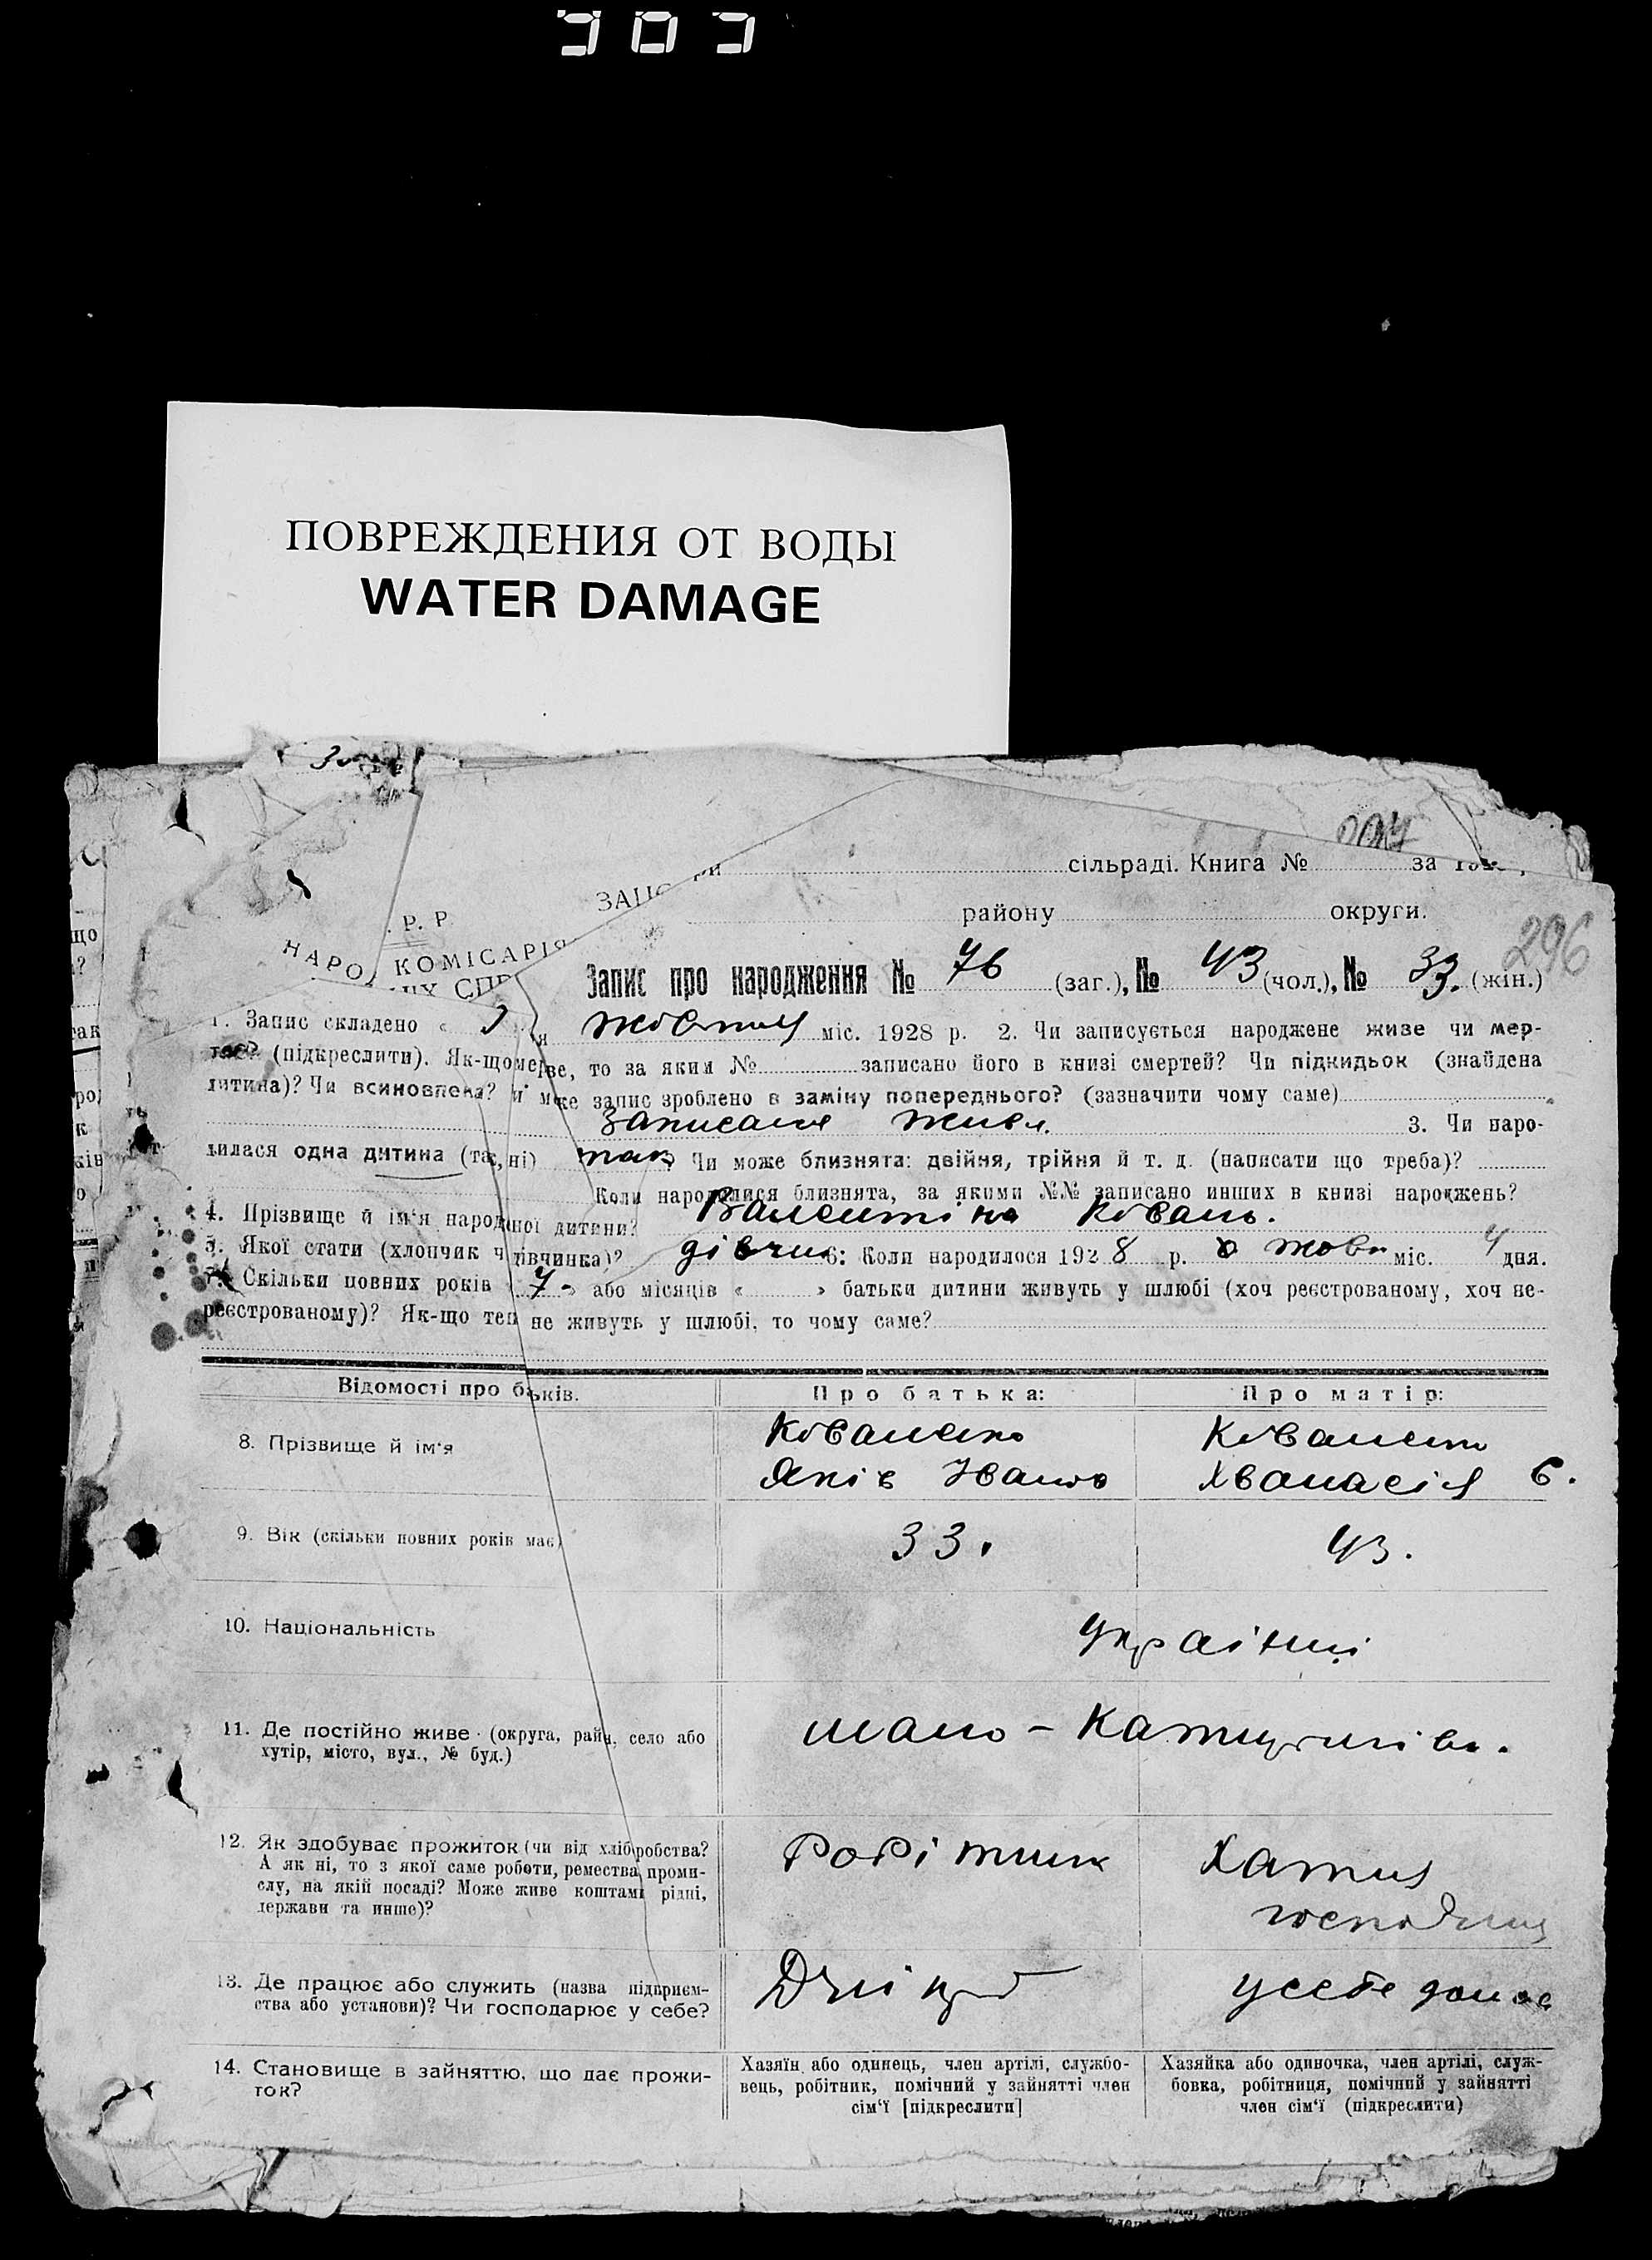 ПОВРЕЖДЕНИЯ ОТ ВОДЫ
WATER DAMAGE
сільраді. Книга № за
району округи.
296
. Р. Р
КОМІСАРІЯ
Запис про народження № 76 (заг.), № 43 (чол.), № 33. (жін.)
1. Запис складено « міс. 1928 р. 2. Чи записується народжене живе чи мер-
(підкреслити). Як-що ве, то за яким № записано його в книзі смертей? Чи підкидьок (знайдена
дитина)? Чи всиновлена? же запис зроблено в заміну попереднього? (зазначити чому саме)
3. Чи наро-
дилася одна дитина (так, ні) так Чи може близнята: двійня, трійня й т. д. (написати що треба)?
Коли народилися близнята, за якими №№ записано инших в книзі народжень?
4. Прізвище й ім'я народ ної дитини? Валентіна
5. Якої стати (хлопчик ч івчинка)? 6: Коли народилося 1928 р. міс. 4 дня.
7. Скільки повних років « 7 » або місяців « » батьки дитини живуть у шлюбі (хоч реєстрованому, хоч не-
реєстрованому)? Як-що теп не живуть у шлюбі, то чому саме?
Відомості про батьків. Про батька: Про матір:
8. Прізвище й ім'я Коваленко
Яків
9. Вік (скільки повних років має) 33. 43.
10. Національність Українці
11. Де постійно живе (округа, райн, село або
хутір, місто, вул., № буд.)
12. Як здобуває прожиток (чи від хліборобства?
А як ні, то з якої саме роботи, ремества, проми-
слу, на якій посаді? Може живе коштамі рідні,
держави та инше)?
Робітник
13. Де працює або служить (назва підприєм-
ства або установи)? Чи господарює у себе?
усебе дома
14. Становище в зайняттю, що дає прожи-
ток?
Хазяїн або одинець, член артілі, службо-
вець, робітник, помічний у зайнятті член
сім'ї [підкреслити]
Хазяйка або одиночка, член артілі, служ-
бовка, робітниця, помічний у зайнятті
член сім'ї (підкреслити)